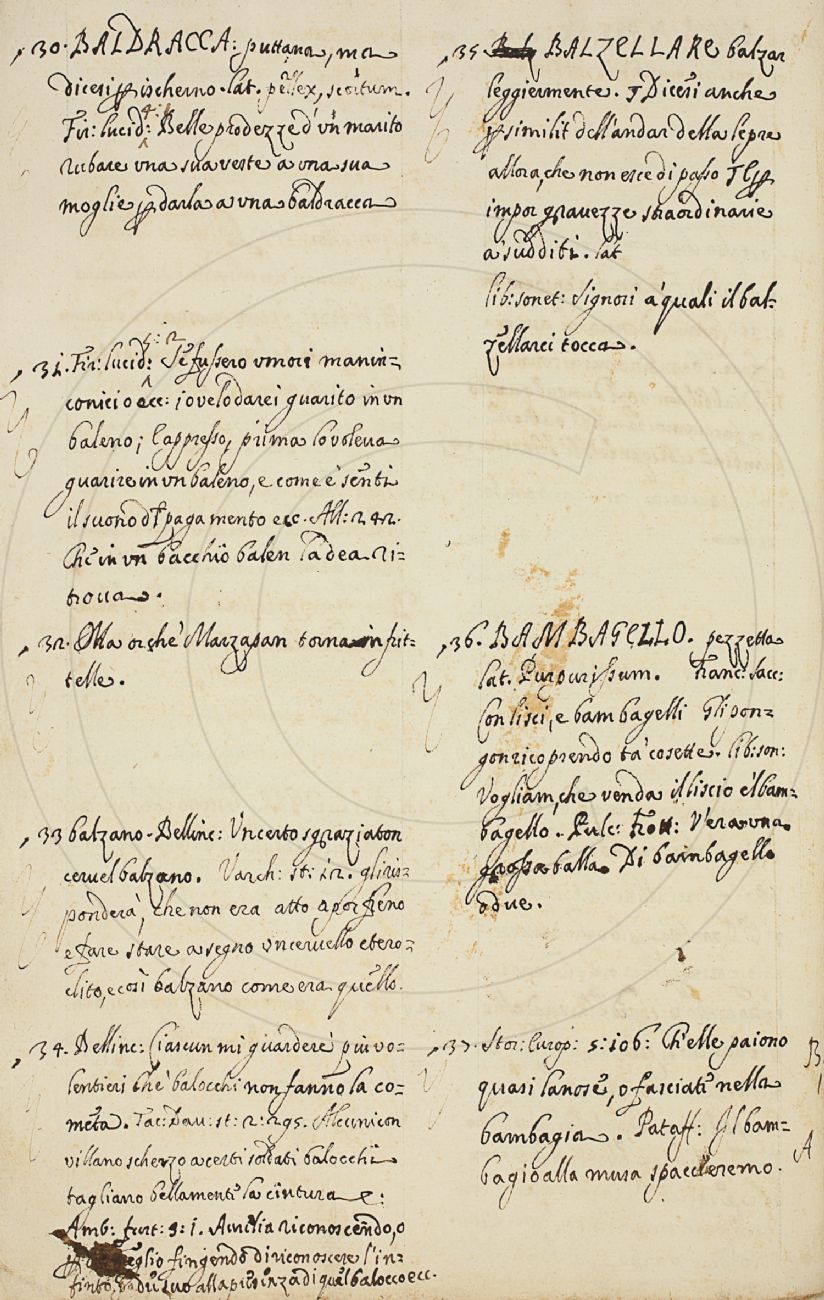 30. BALDRACCA: puttana, ma
dicesi p ischerno. lat. pellex, scortum.
4:1
Fir: lucid: Belle prodezze d'un marito
rubare una sua veste a una sua
moglie p darla a una baldracca
5:2
31. Fir: lucid: Se fussero umori manin=
conici o ecc: io ve lo darei guarito in un
baleno; E appresso, prima lo voleva
guarire in un baleno, e come e' sentì
il suono d pagamento ecc. All: 242.
Che in un bacchio balen la dea ri=
trova.
32. Otta orche' Marzapan torna in frit=
telle.
33 balzano. Bellinc: Un certo sgraziaton
cervel balzano. Varch: st: 12. gli ris=
ponderà, che non era atto a por freno
e fare stare a segno un cervello etero=
clito, e così balzano come era quello.
34. Bellinc: Ciascun mi guardere' più vo=
lentieri Che' balocchi non fanno la co=
meta. Tac: Dav: st: 2: 295. Alcuni con
villano scherzo a certi soldati balocchi
tagliano bellamente la cintura e:
Amb: furt: 3: 1. Aurelia riconoscendo, o
p meglio fingendo di riconoscere l'in=
finto, alla presenza di quel balocco ecc.
35 BALZELLARE balzar
leggiermente. ¶ Dicesi anche
p similit dell'andar della lepre
allora, che non esce di passo ¶ E p
impor gravezze straordinarie
a sudditi. lat
lib: sonet: Signori a' quali il bal=
zellarci tocca.
36. BAMBAGELLO. pezzetta
lat. Purpurissum. Franc: Sacc:
Con lisci, e bambagelli Gli pon=
gon ricoprendo ta' cosette. lib: son:
Vogliam, che venda il liscio e'l bam=
bagello. Pulc: Frott: V'era una
grossa balla Di bambagello
o due.
37. Stor: Europ: 5: 106: Ch'elle paiono
quasi lanose, o fasciate nella
bambagia. Pataff: Il bam=
bagio alla musa spacceremo.
B
A